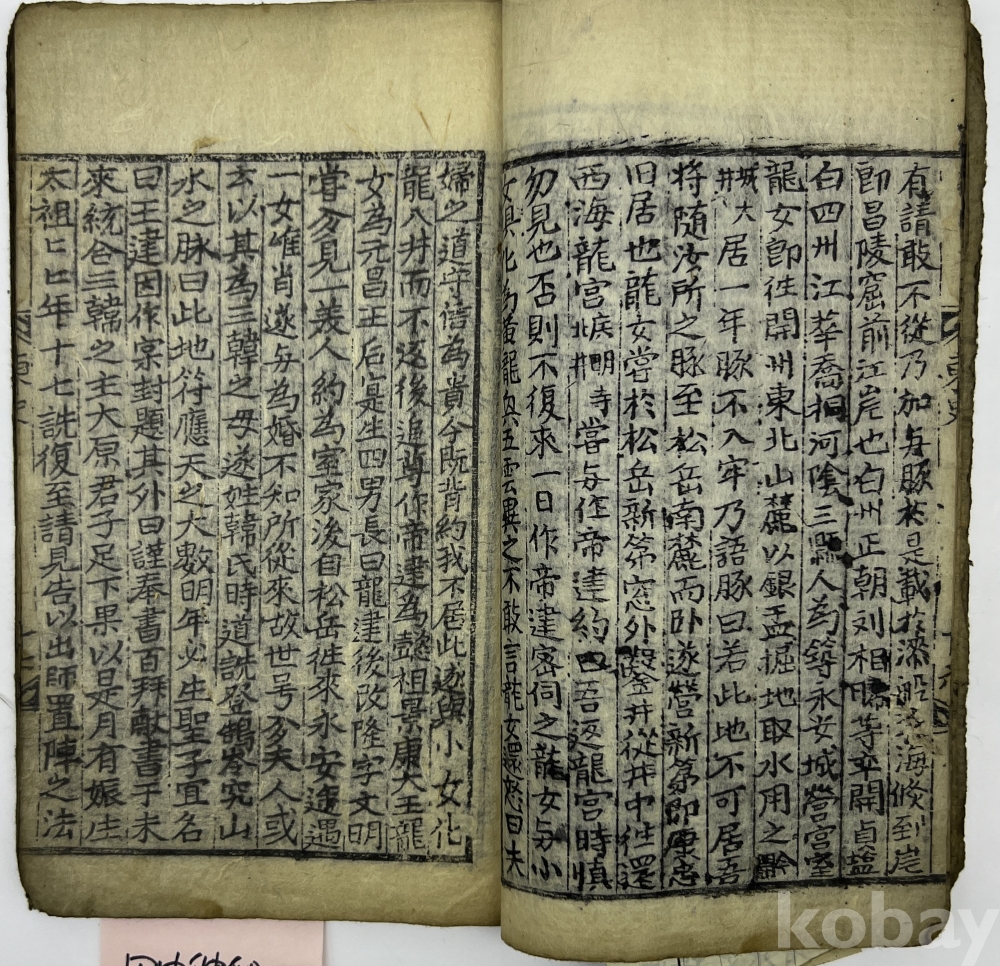 有請敢不從乃加与豚於是載於漆船浮海倐到岸
即昌陵窟前江岸也白州正朝刘相晞等率開貞盐
白四州江華喬桐河陰三縣人為築永安城營宮室
龍女即徃開州東北山麓以銀盂掘地取水用之
城大井居一年豚不入牢乃語豚曰若此地不可居吾
将随汝所之豚至松岳南麓而卧遂營新第即康忠
旧居也龍女嘗於松岳新第窓外鑿井從井中徃還
西海龍宮嘗与作帝建約曰吾返龍宮時慎
勿見也否則不復来一日作帝建密伺之龍女与小
女俱化為黄龍興五雲異之不敢言龍女還怒曰夫
婦之道守信為貴今既背約我不居此遂與小女化
龍入井而不返後追尊作帝建為懿祖景康大王龍
女為元昌正后是生四男長曰龍建後改隆字文明
甞夢見一美人約為室家後自松岳徃來永安道遇
一女唯肖遂与為婚不知所從來故世号夢夫人或
玄以其為三韓之母遂姓韓氏時道詵登鵠岺究山
水之脉曰此地符應天之大數明年必生聖子宜名
曰王建因作宲封題其外曰謹奉書百拜献書于未
來統合三韓之主大原君子足下果以是月有娠生
太祖年十七詵復至請見告以出師置陣之法
東史
kobay